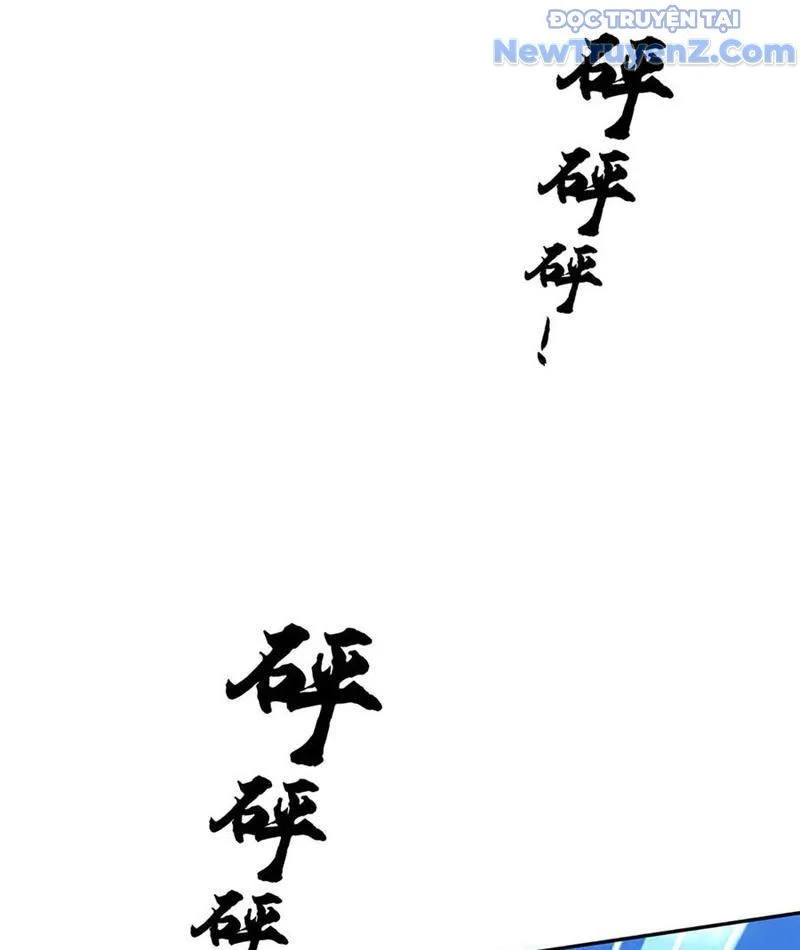 ĐỌC TRUYỆN TẠI
NewTruyenZ.com
砰
砰
砰
!
砰
砰
砰